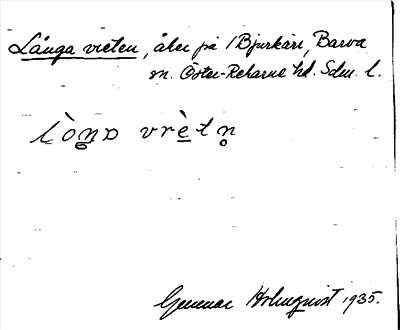 Långa vreten, åker på /Bjurkärr, Barva
sn. Öster-Rekarne hd. Sdm. l.
lòŋa vrètn̥
Gunnar Holmquist 1935.